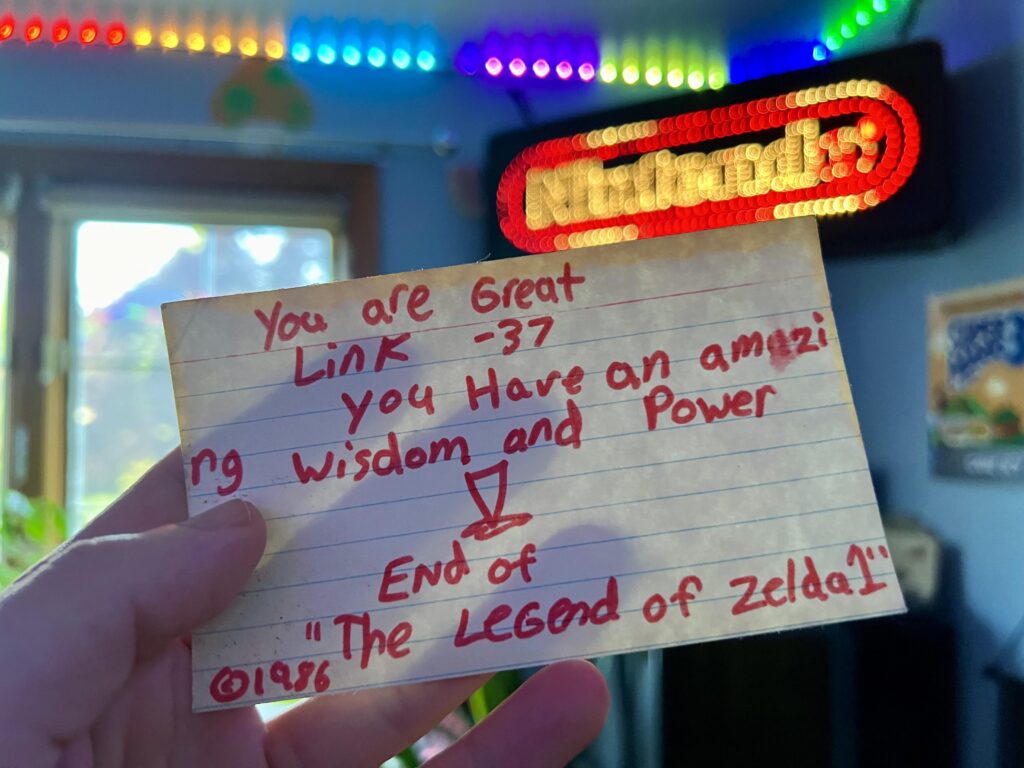 Nintendo
You are Great
Link -37
you Have an amazi
ng wisdom and Power
End of
"The LeGend of Zelda 1"
©1986